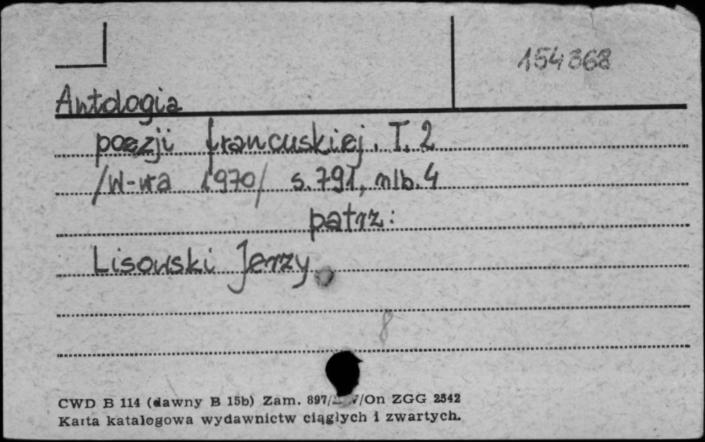 154368
Antologia
poezji francuskiej. T. 2
/W-wa 1970/ s. 791, nlb. 4
patrz:
Lisowski Jerzy
8
CWD B 114 (dawny B 15b) Zam. 897/ /On ZGG 2542
Karta katalogowa wydawnictw ciągłych i zwartych.